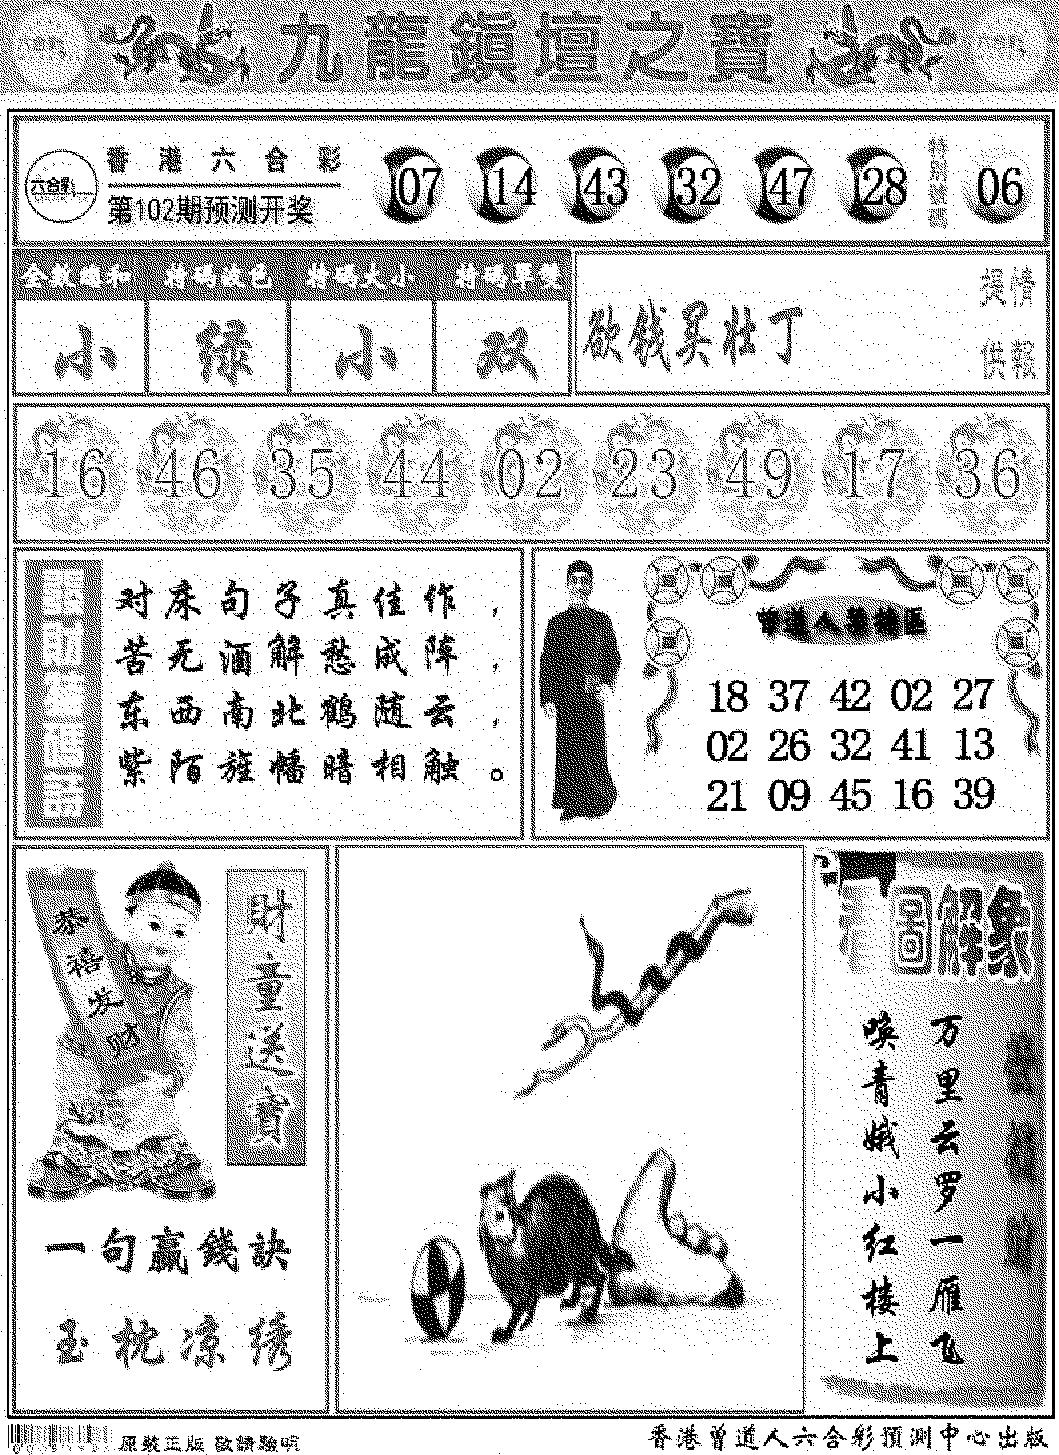 九龍鎮壇之寶
香港六合彩
六合彩
第102期预测开奖
07 14 43 32 47 28
特別號碼
06
特码波色 特码大小 特码单雙
小 绿 小 双
欲钱买壮丁
提供
情报
16 46 35 44 02 23 49 17 36
对床句子真佳作，
苦无酒解愁成阵，
东西南北鹤随云，
紫陌旌幡暗相触。
18 37 42 02 27
02 26 32 41 13
21 09 45 16 39
恭禧发财
財童送寶
一句贏錢訣
玉枕凉绣
看圖解象
万里云罗一雁飞
唤青娥小红楼上
原裝正版 敬請驗明
香港曾道人六合彩預測中心出版